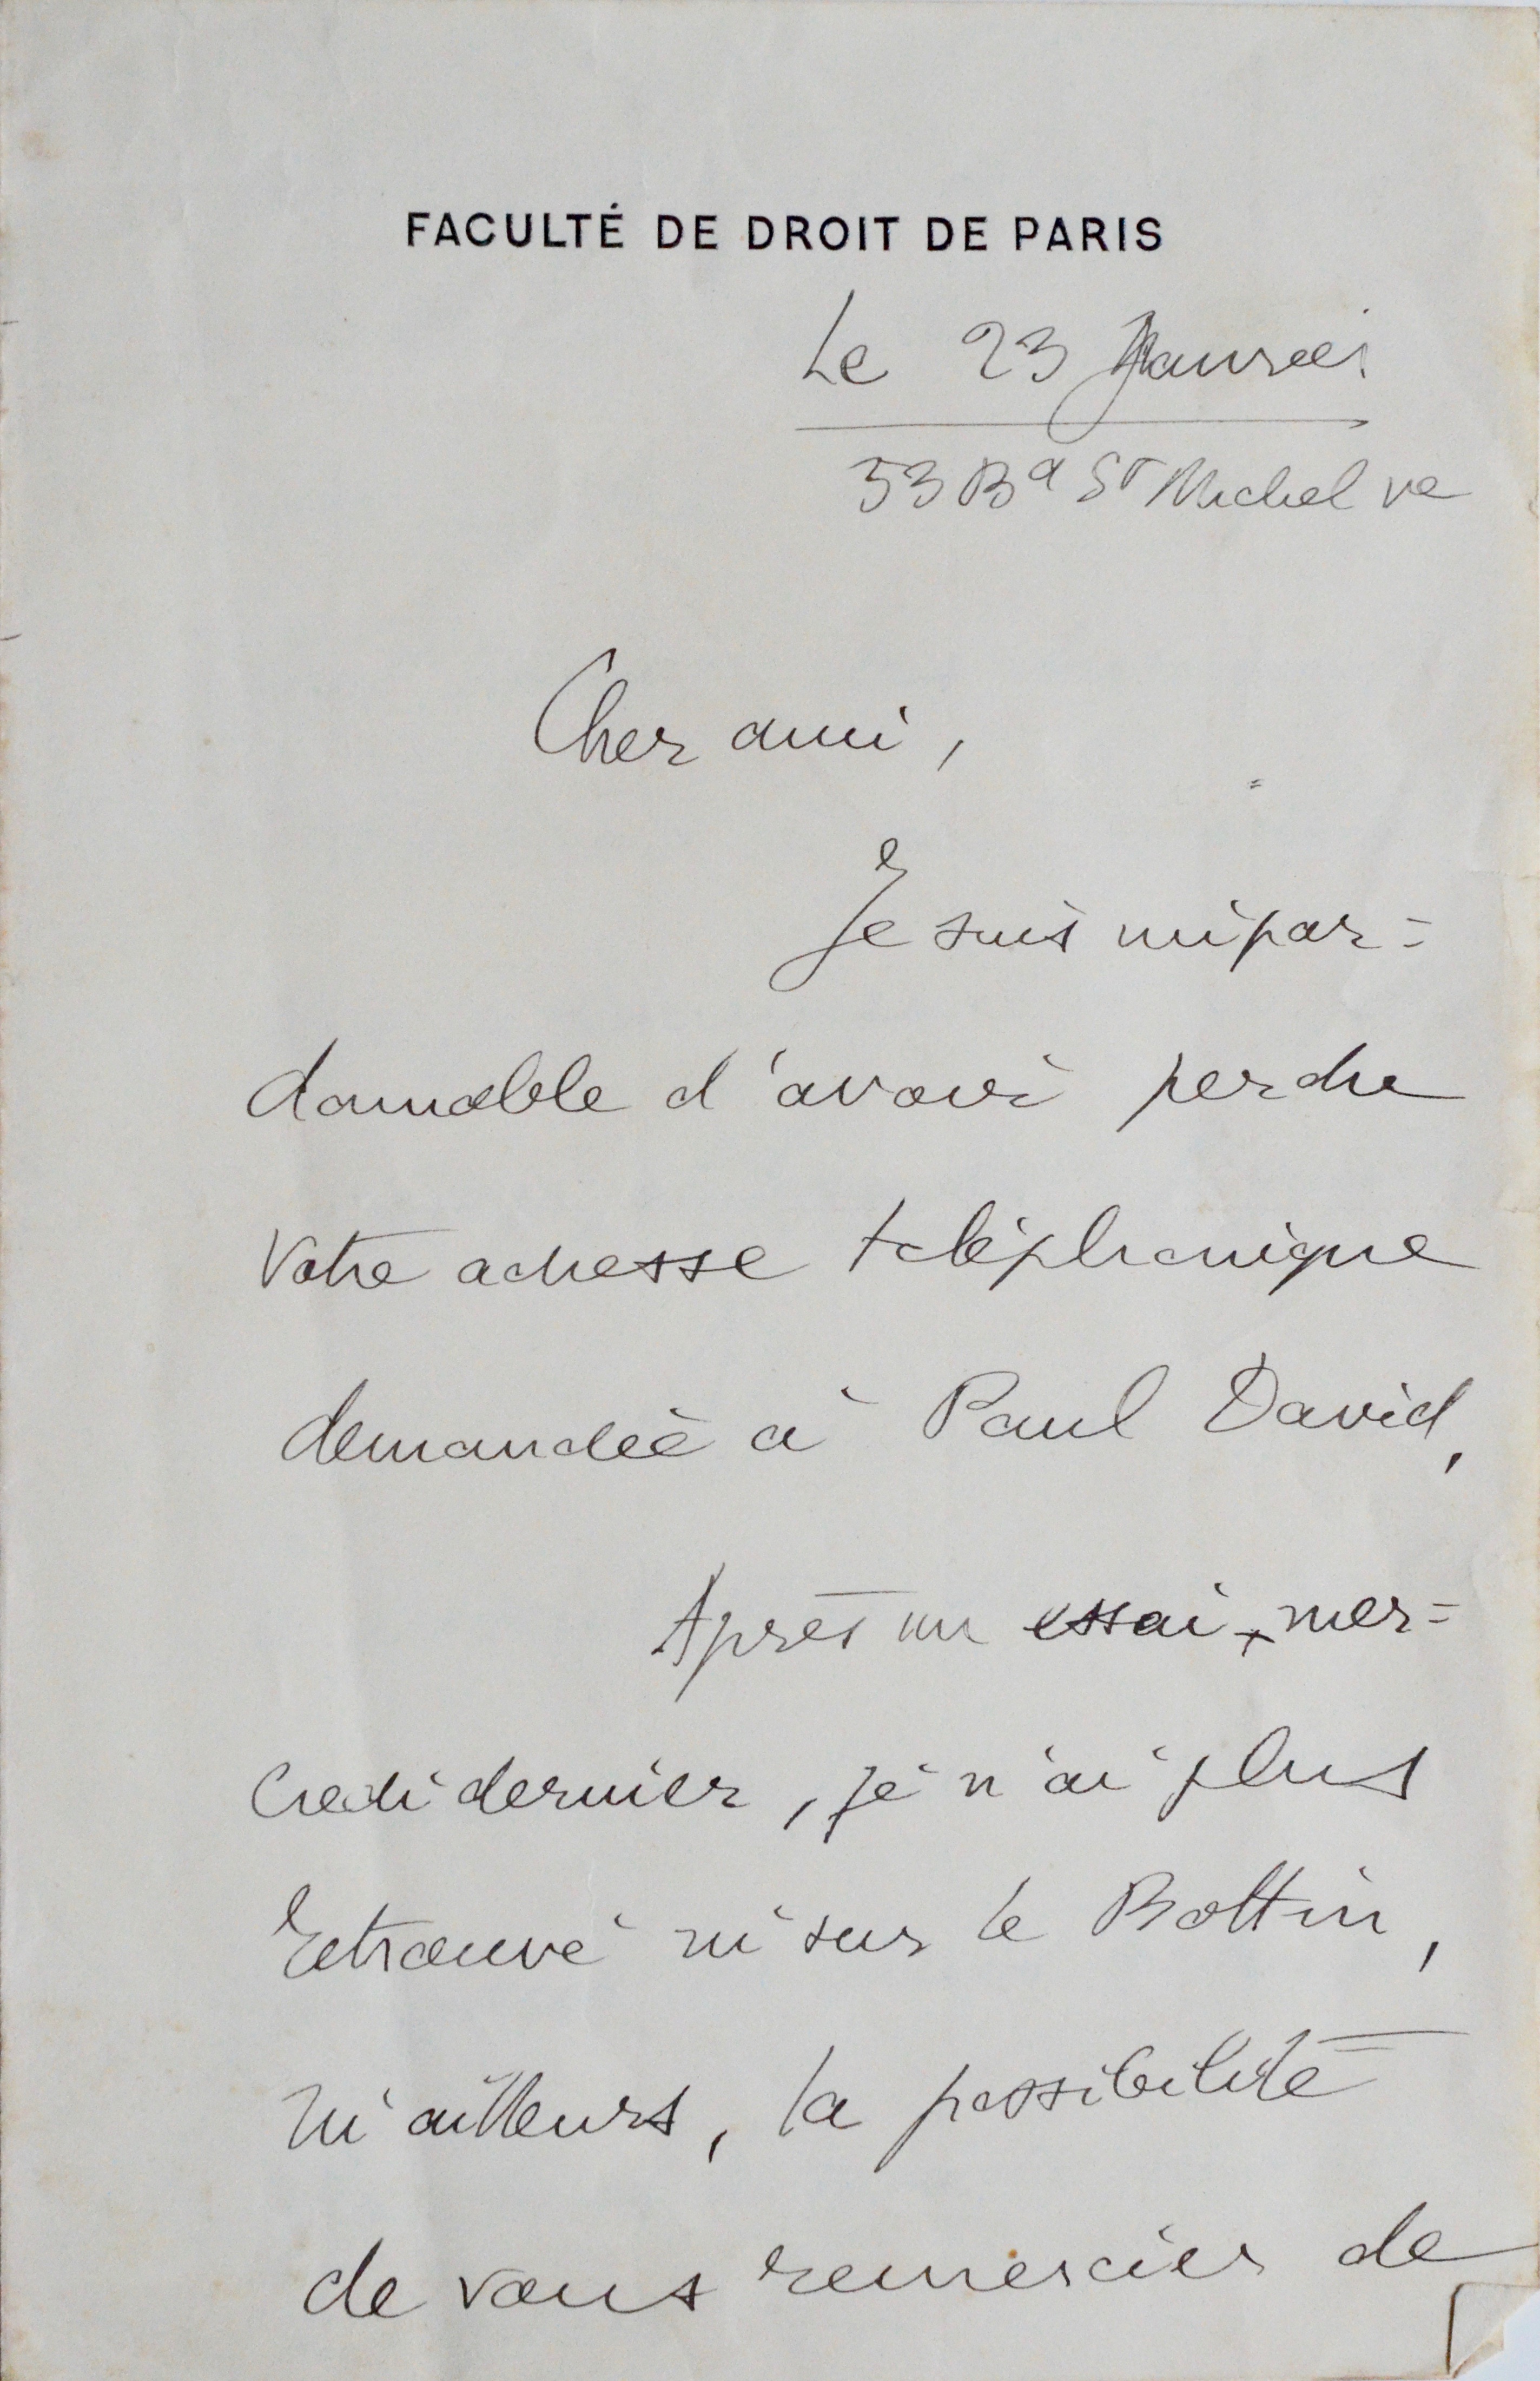 FACULTÉ DE DROIT DE PARIS
Le 23 Janvier
53 Bd St Michel Ve
Cher ami,
Je suis impar=
donnable d'avoir perdu
votre adresse téléphonique
demandée à Paul David,
Après un essai, mer=
credi dernier, je n'ai plus
retrouvé ni sur le Bottin,
ni ailleurs, la possibilité
de vous remercier de